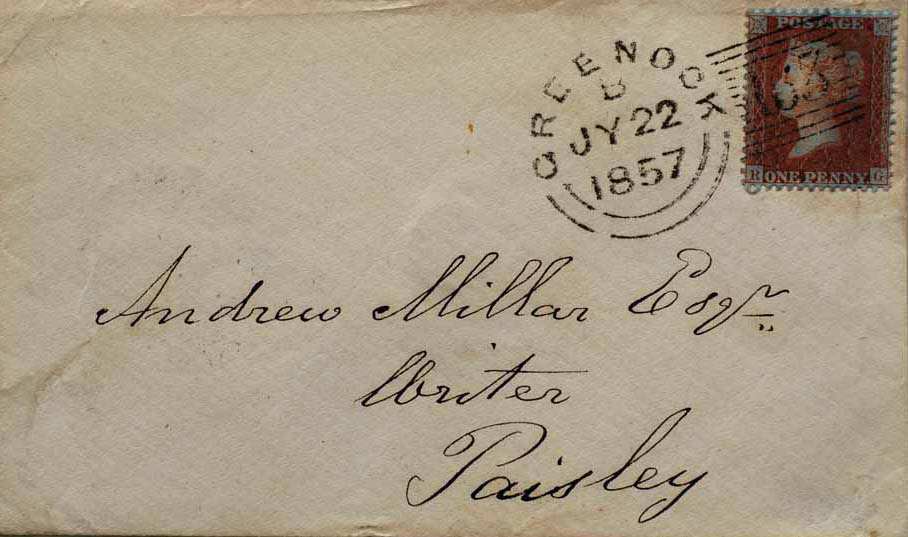 POSTAGE
GREENOCK
B
JY 22
1857
R ONE PENNY G
Andrew Millar Esqr
Writer
Paisley